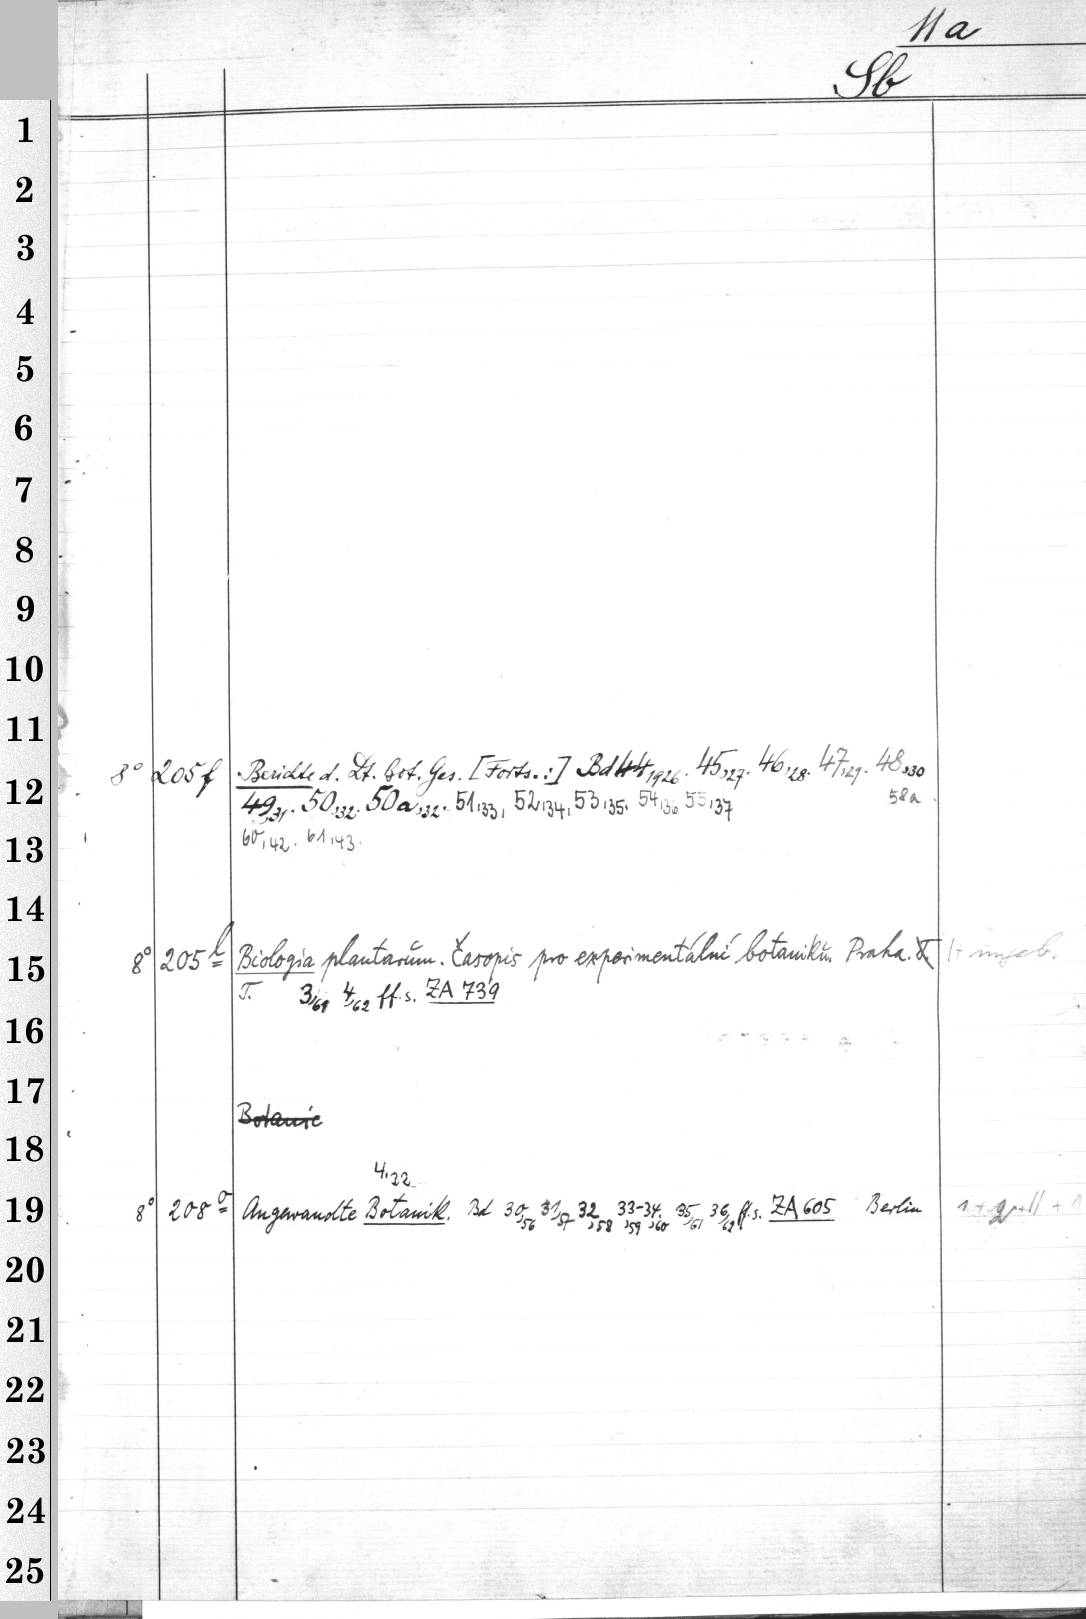 11a
Sb
1
2
3
4
5
6
7
8
9
10
11
12
13
14
15
16
17
18
19
20
21
22
23
24
25
8° 205f Berichte d. Dt. bot. Ges. [Forts.:] Bd 44,1926. 45,27. 46,28. 47,29. 48,30
49,31. 50,32. 50a,32. 51,33, 52,34, 53,35. 54,36 55,37 58a
60,42. 61,43.
8° 205l Biologia plantarum. Časopis pro experimentální botaniku. Praha. 1+ ungeb.
T. 3,61 4,62 ff. s. ZA 739
Botanic
4,22
8° 208o Angewandte Botanik. Bd 30,56 31,57 32,58 33-34,59,60 35,61 36,62 ff. s. ZA 605 Berlin